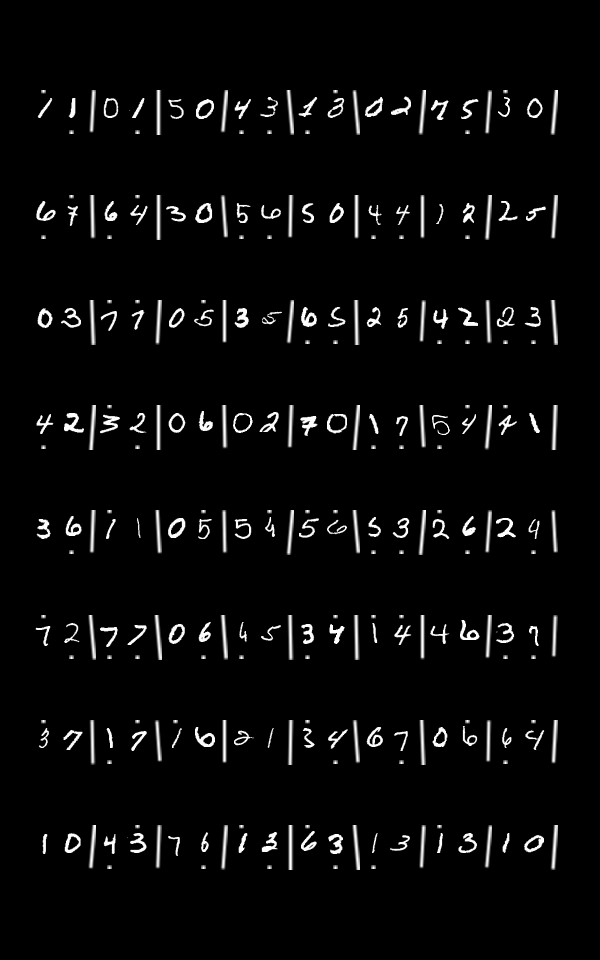 1 1 | 0 1 | 5 0 | 4 3 | 1 3 | 0 2 | 7 5 | 3 0 |
6 7 | 6 4 | 3 0 | 5 6 | 5 0 | 4 4 | 1 2 | 2 5 |
0 3 | 7 7 | 0 5 | 3 5 | 6 5 | 2 5 | 4 2 | 2 3 |
4 2 | 3 2 | 0 6 | 0 2 | 7 0 | 1 7 | 5 4 | 4 1 |
3 6 | 1 1 | 0 5 | 5 4 | 5 6 | 5 3 | 2 6 | 2 4 |
7 2 | 7 7 | 0 6 | 4 5 | 3 4 | 1 4 | 4 6 | 3 7 |
3 7 | 1 7 | 1 6 | 2 1 | 3 4 | 6 7 | 0 6 | 6 4 |
1 0 | 4 3 | 7 6 | 1 3 | 6 3 | 1 3 | 1 3 | 1 0 |